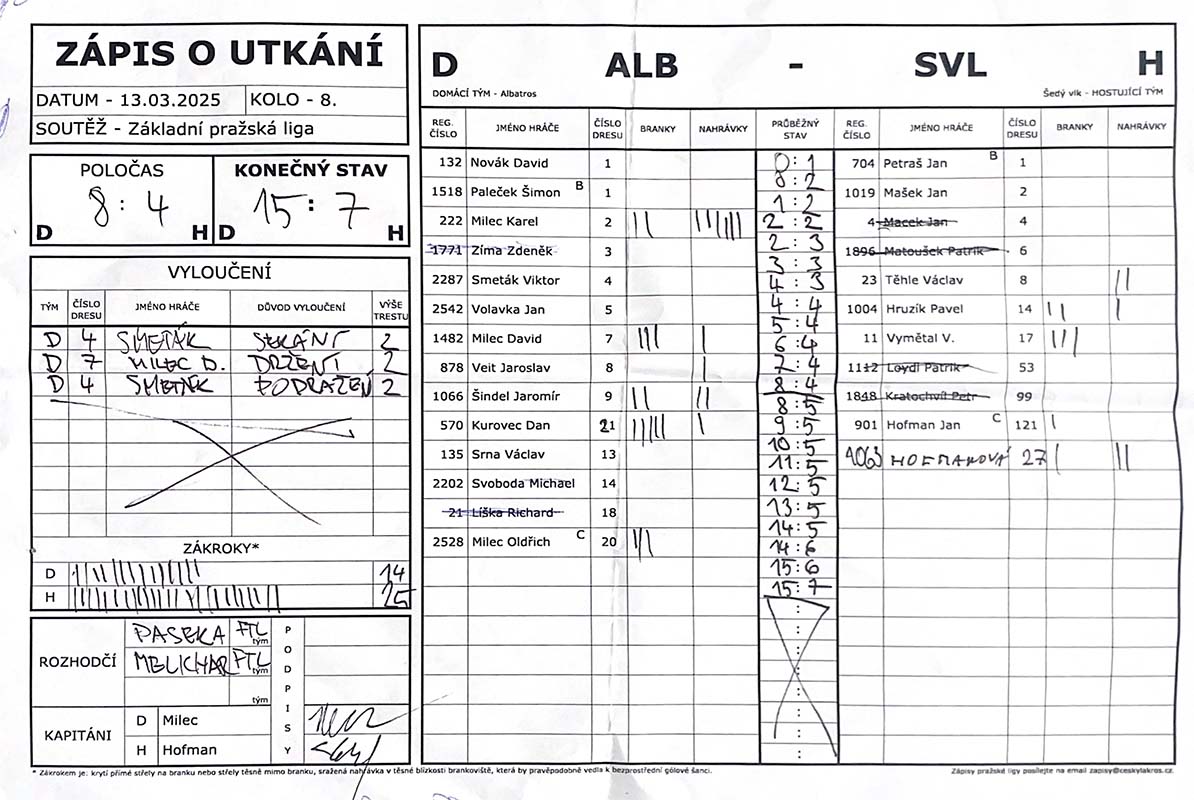 ZÁPIS O UTKÁNÍ
DATUM - 13.03.2025 KOLO - 8.
SOUTĚŽ - Základní pražská liga
POLOČAS KONEČNÝ STAV
8 : 4 15 : 7
D H D H
VYLOUČENÍ
TÝM ČÍSLO DRESU JMÉNO HRÁČE DŮVOD VYLOUČENÍ VÝŠE TRESTU
D 4 SMETÁK SEKÁNÍ 2
D 7 MILEC D. DRŽENÍ 2
D 4 SMETÁK PODRAŽENÍ 2
ZÁKROKY*
D 14
H 25
ROZHODČÍ
PASEKA FTL tým
MELICHAR FTL tým
tým
KAPITÁNI
D Milec
H Hofman
PODPISY
D ALB - SVL H
DOMÁCÍ TÝM - Albatros Šedý vlk - HOSTUJÍCÍ TÝM
REG. ČÍSLO JMÉNO HRÁČE ČÍSLO DRESU BRANKY NAHRÁVKY PRŮBĚŽNÝ STAV REG. ČÍSLO JMÉNO HRÁČE ČÍSLO DRESU BRANKY NAHRÁVKY
132 Novák David 1
1518 Paleček Šimon B 1
222 Milec Karel 2
1771 Zíma Zdeněk 3
2287 Smeták Viktor 4
2542 Volavka Jan 5
1482 Milec David 7
878 Veit Jaroslav 8
1066 Šindel Jaromír 9
570 Kurovec Dan 21
135 Srna Václav 13
2202 Svoboda Michael 14
21 Líška Richard 18
2528 Milec Oldřich C 20
0 : 1
0 : 2
1 : 2
2 : 2
2 : 3
3 : 3
4 : 3
4 : 4
5 : 4
6 : 4
7 : 4
8 : 4
8 : 5
9 : 5
10 : 5
11 : 5
12 : 5
13 : 5
14 : 5
14 : 6
15 : 6
15 : 7
704 Petraš Jan B 1
1019 Mašek Jan 2
4 Macek Jan 4
1896 Matoušek Patrik 6
23 Těhle Václav 8
1004 Hruzík Pavel 14
11 Vymětal V. 17
1112 Loydl Patrik 53
1848 Kratochvíl Petr 99
901 Hofman Jan C 121
4063 HOFMANOVÁ 27
* Zákrokem je: krytí přímé střely na branku nebo střely těsně mimo branku, sražená nahrávka v těsné blízkosti brankoviště, která by pravěpodobně vedla k bezprostřední gólové šanci.
Zápisy pražské ligy posílejte na email zapisy@ceskylakros.cz.